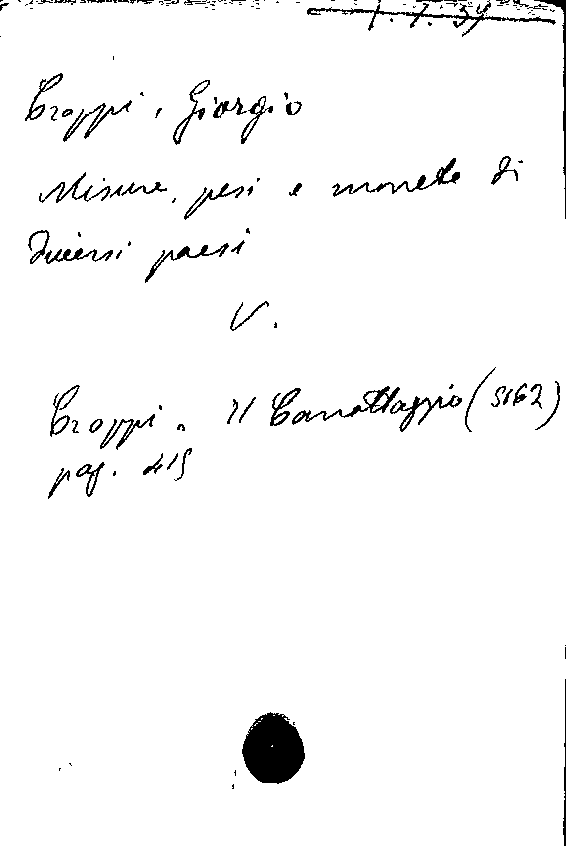 Croppi, Giorgio
Misure, pesi e monete di
diversi paesi
V.
Croppi. Il Canottaggio (5162)
pag. 415